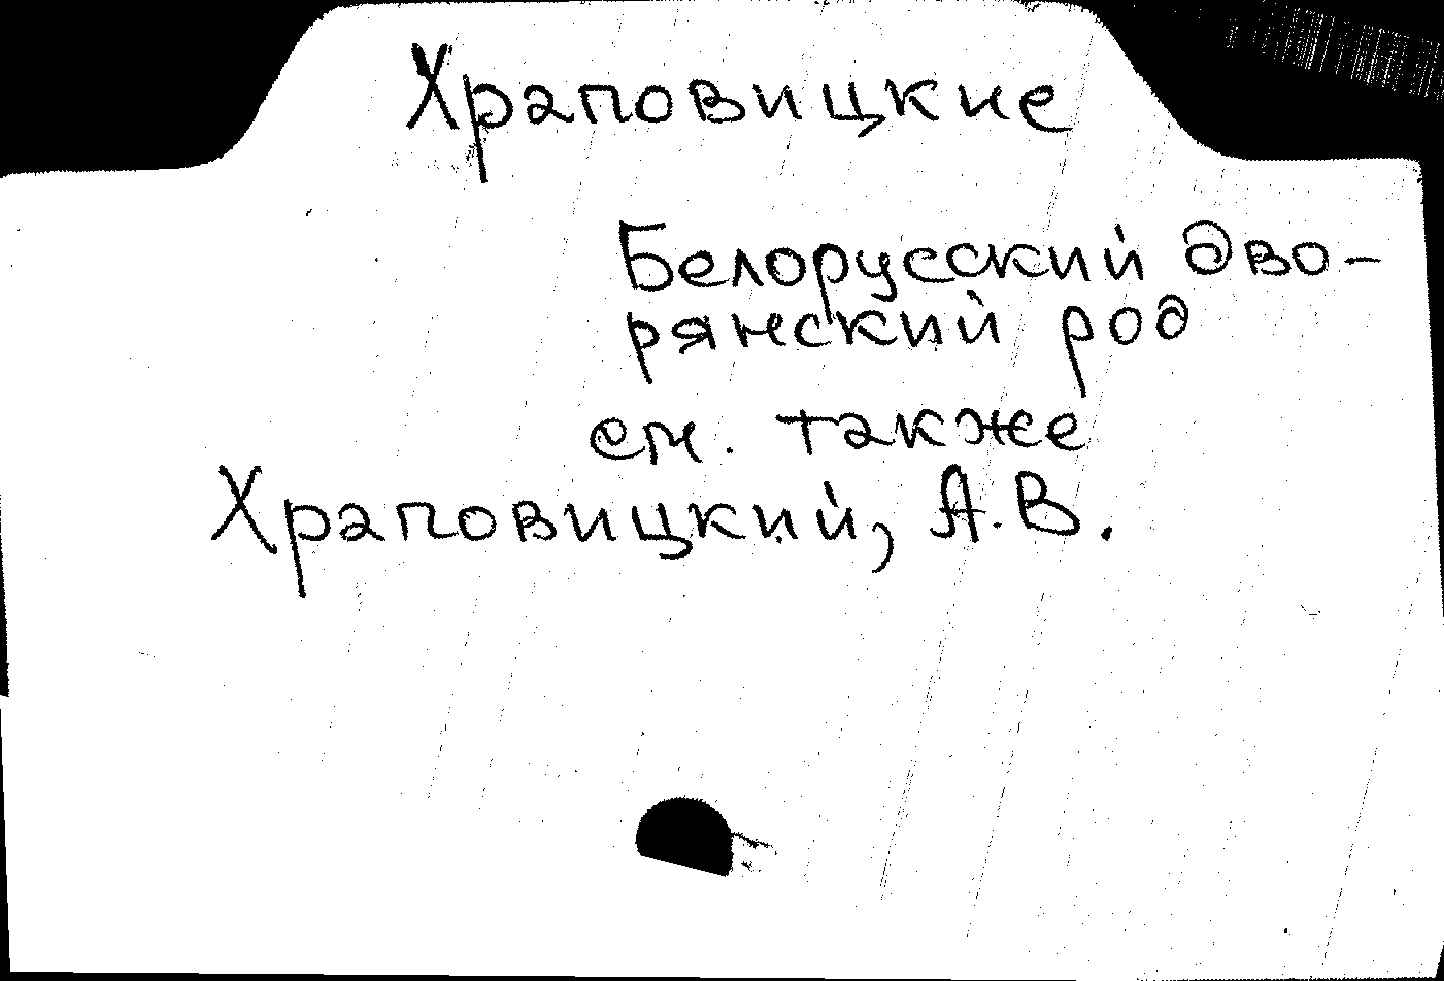 Храповицкие
Белорусский дво-
рянский род
см. также
Храповицкий, А.В.